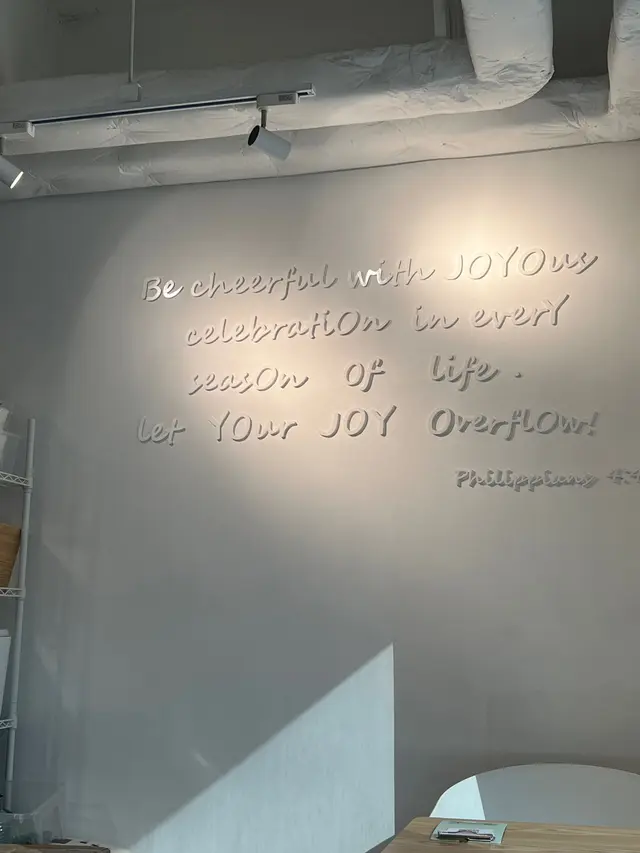 Be cheerful with JOYOus
celebratiOn in everY
seasOn Of life .
let YOur JOY OverflOw!
Philippians 4:4